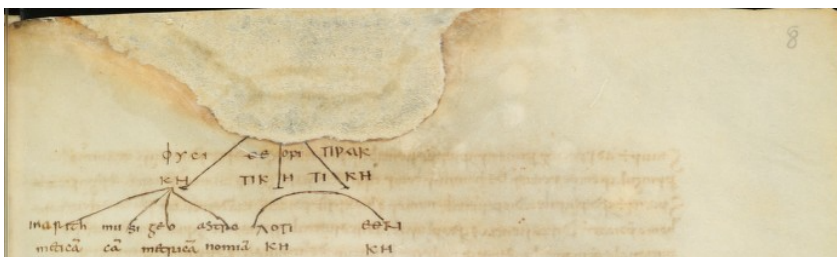 8
ΦΥCΙ ΘΕ ΟΡΙ ΠΡΑΚ
ΚΗ ΤΙΚ Η ΤΙ ΚΗ
inarith mu si geo astro ΛΟΓΙ
meticā cā metricā nomiā ΚΗ ΚΗ